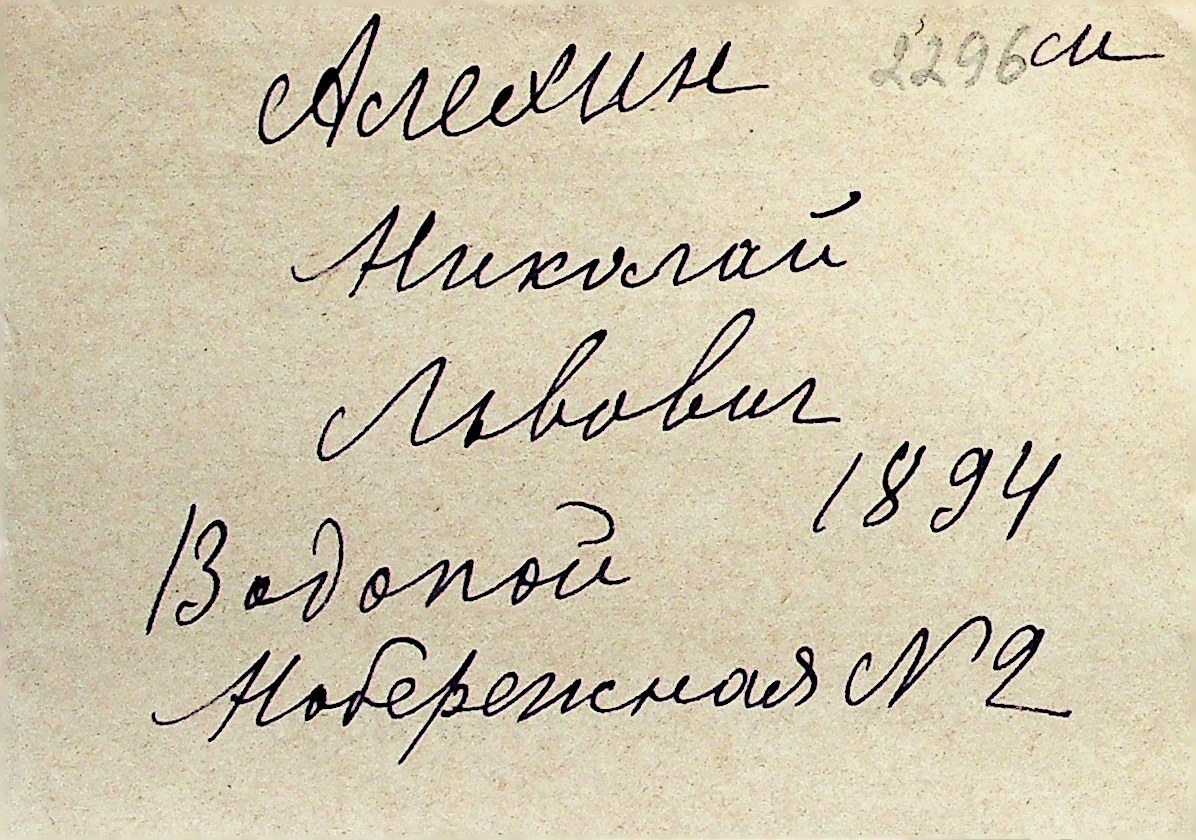 Алехин 2296 си
Николай
Львович
1894
Водопой
Набережная № 2